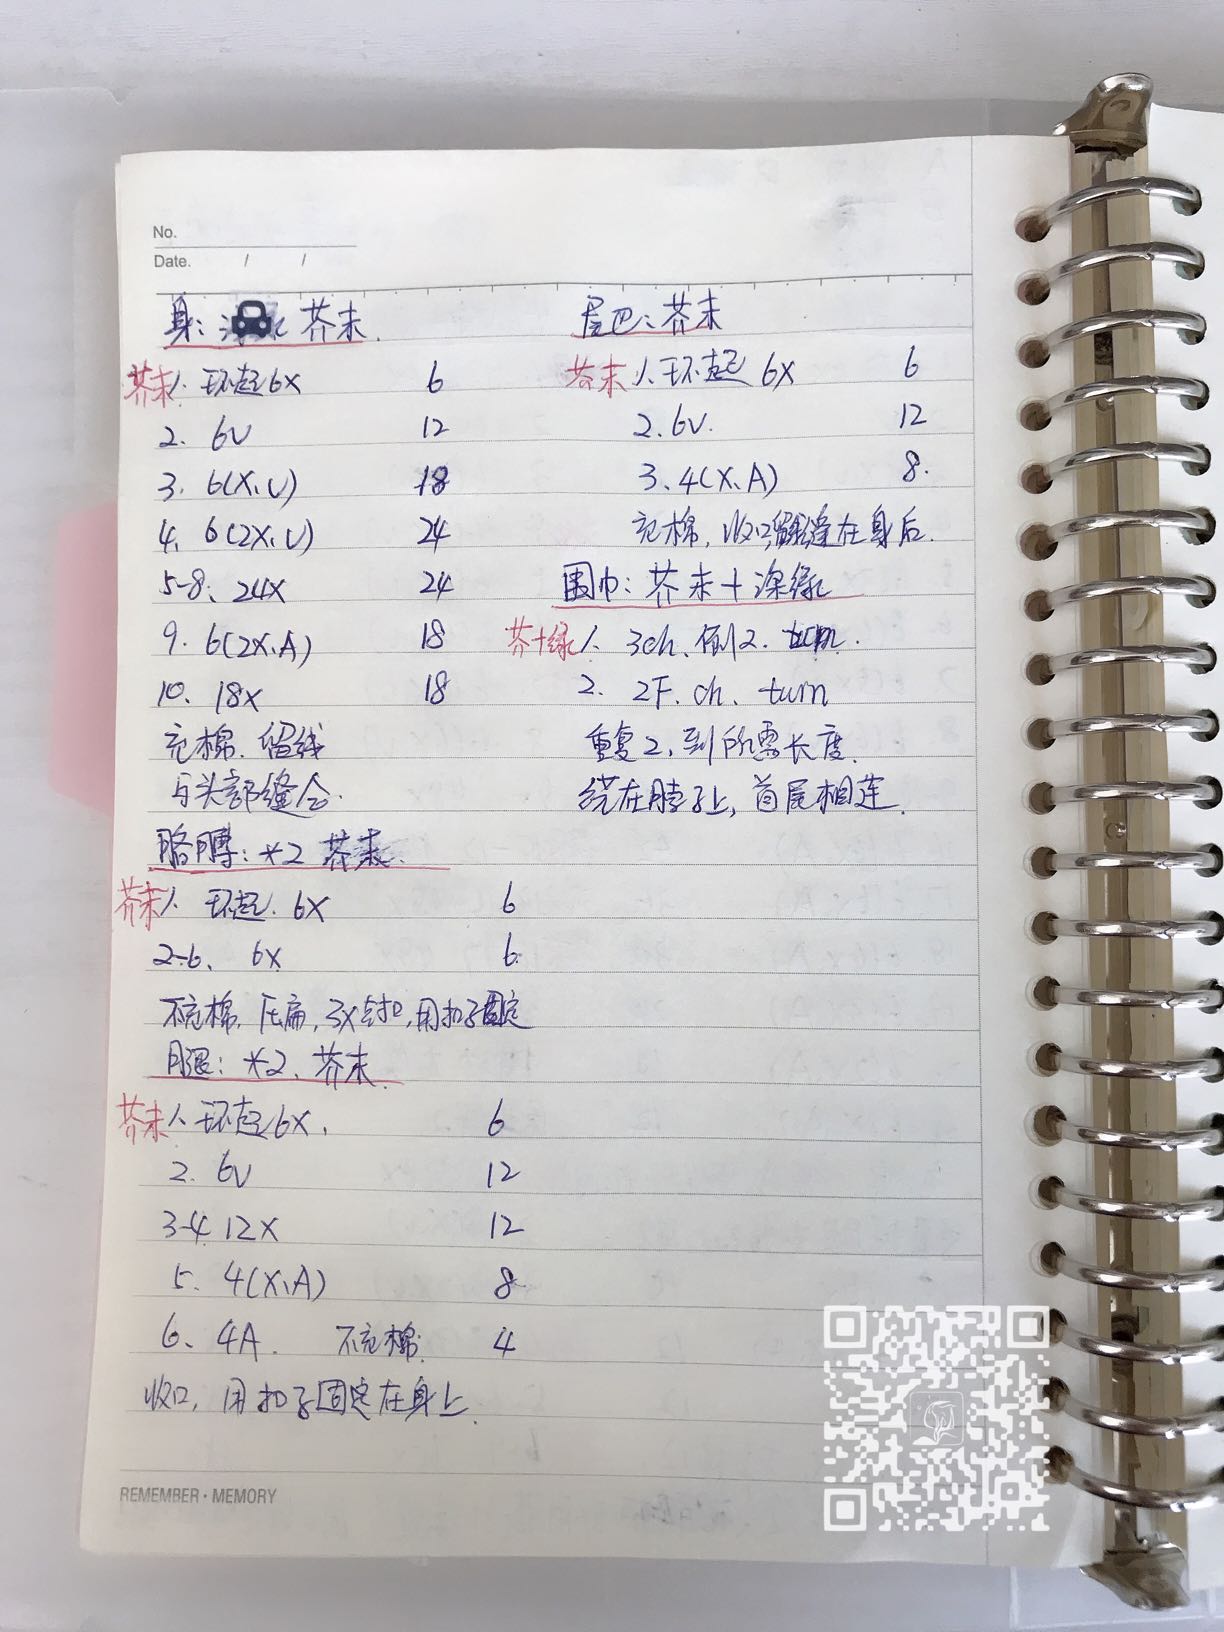 No.
Date. / /
身: 芥末.
芥末 1、环起6X 6
2. 6V 12
3. 6(X、V) 18
4. 6(2X、V) 24
5-8、24X 24
9. 6(2X、A) 18
10. 18X 18
充棉. 留线
与头部缝合.
胳膊: *2 芥末.
芥末 1、环起. 6X 6
2-6、 6X 6
不充棉, 压扁, 3X封口, 用扣子固定
腿: *2、芥末.
芥末 1、环起6X. 6
2. 6V 12
3-4 12X 12
5. 4(X、A) 8
6、4A. 不充棉. 4
收口, 用扣子固定在身上.
尾巴: 芥末
芥末 1、环起 6X 6
2. 6V. 12
3、4(X、A) 8.
充棉, 收口, 留线缝在身后.
围巾: 芥末+深绿
芥+绿 1、3ch、倒2. turn.
2. 2F. ch. turn
重复2, 到所需长度.
绕在脖子上, 首尾相连.
REMEMBER · MEMORY